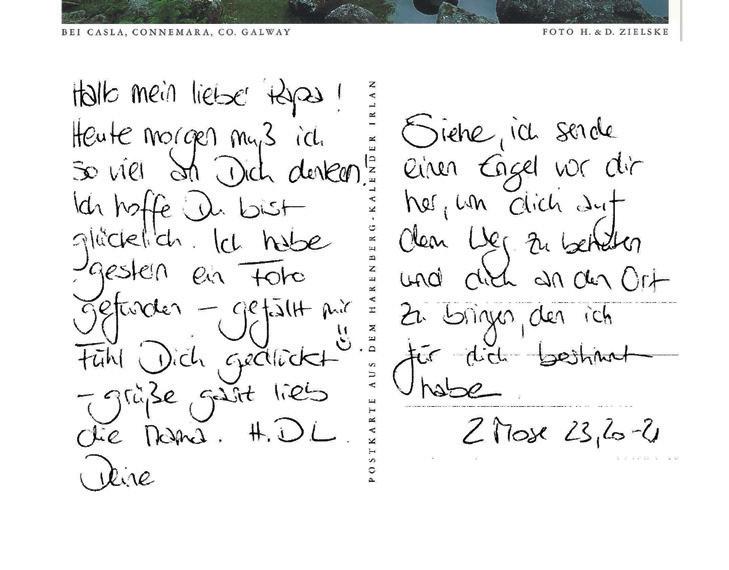 BEI CASLA, CONNEMARA, CO. GALWAY
FOTO H. & D. ZIELSKE
Hallo mein lieber Papa!
Heute morgen muß ich
so viel an Dich denken!
Ich hoffe Du bist
glücklich. Ich habe
gestern ein Foto
gefunden – gefällt mir
Fühl Dich gedrückt
– grüße ganz lieb
die Mama. H.D.L.
Deine
POSTKARTE AUS DEM HARENBERG-KALENDER IRLAN
Siehe, ich sende
einen Engel vor dir
her, um dich auf
dem Weg zu behüten
und dich an den Ort
zu bringen, den ich
für dich bestimmt
habe
2 Mose 23,20-21